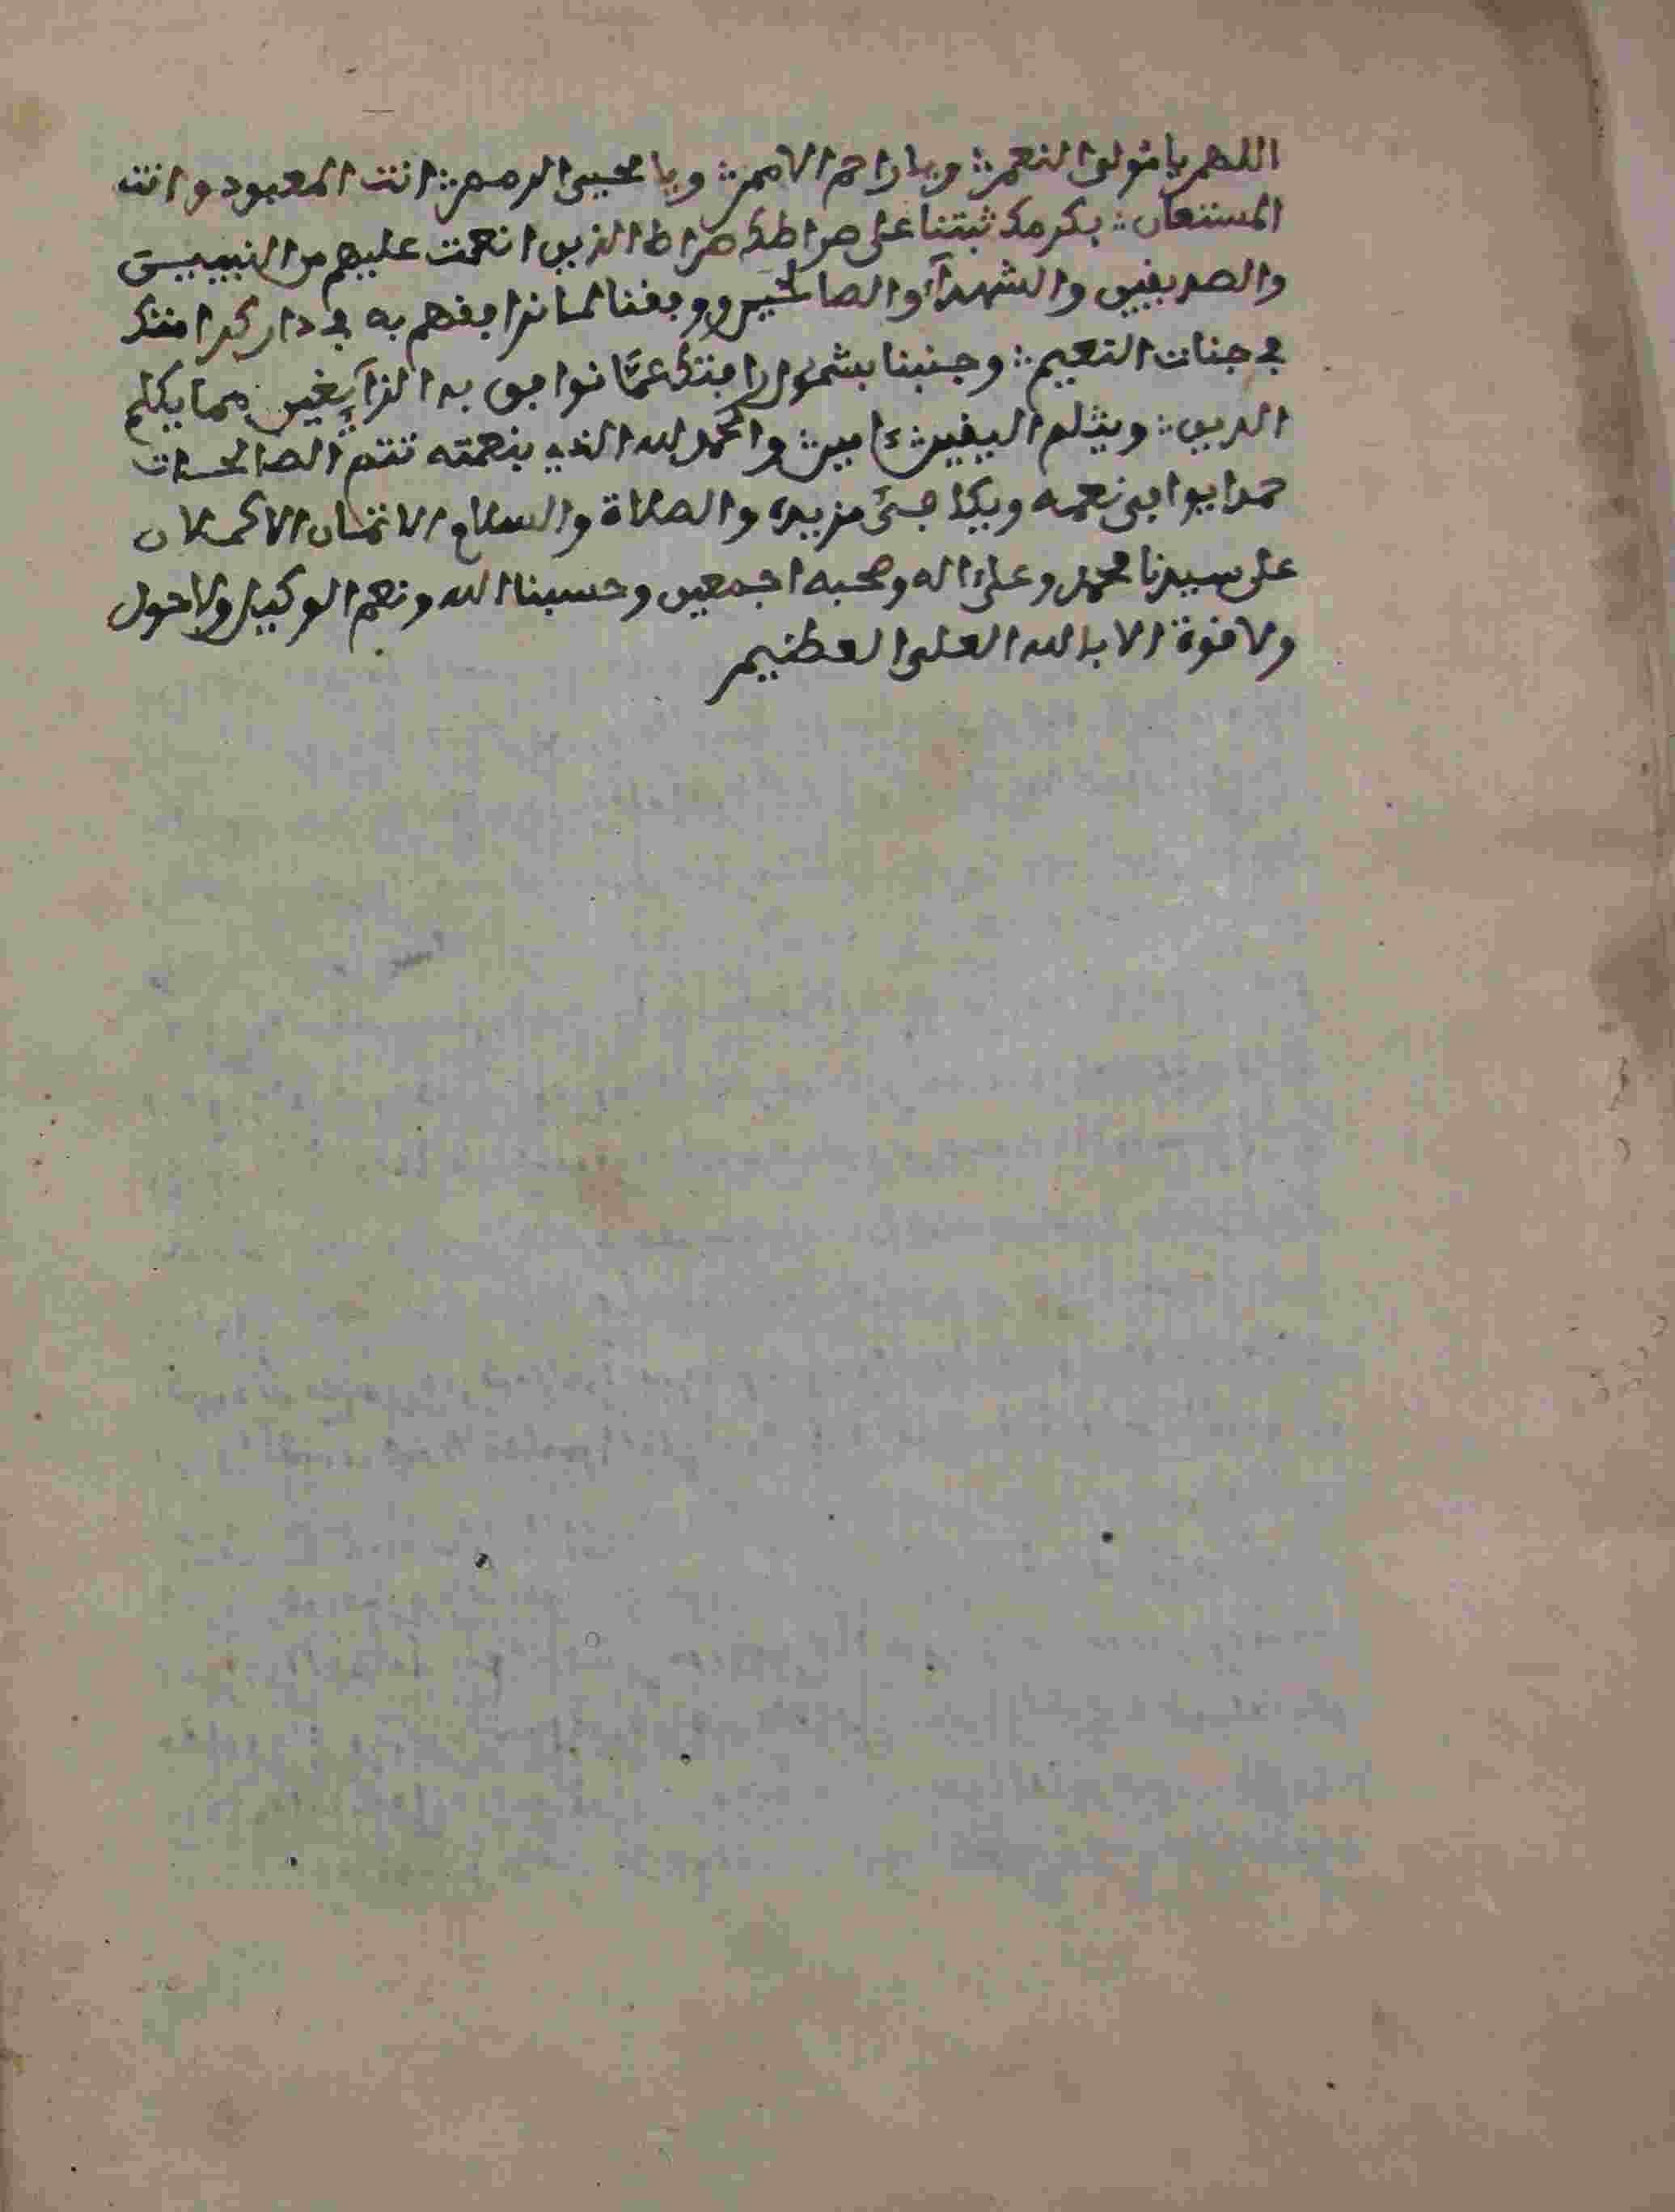 اللهم يا مولى النعم ؛ ويا راحم الامم ؛ ويا محيى الرمم ؛ انت المعبود وانت
المستعان ؛ بكرمك ثبتنا على صراطك صراط الذين انعمت عليهم من النبيين
والصديقين والشهدآء والصالحين ووفقنا لما نرافقهم به في دار كرامتك
في جنات النعيم ؛ وجنبنا بشمول رافتك عمّا نوافق به الزآيغين مما يكلم
الدين ؛ ويثلم اليقين ؛ ءامين ؛ والحمد لله الذي بنعمته تتم الصالحات
حمدا يوافى نعمه ويكافىء مزيده والصلاة والسلام الاتمان الاكملان
على سيدنا محمد وعلى اله وصحبه اجمعين وحسبنا الله ونعم الوكيل ولا حول
ولا قوة الا بالله العلى العظيم